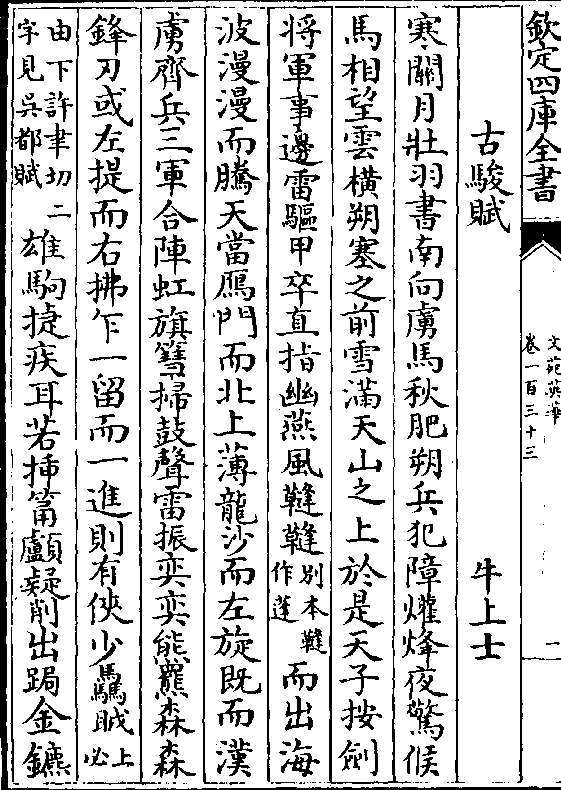 欽定四庫全書
文苑英華
卷一百三十三
古駿賦
牛上士
寒關月壯羽書南向虜馬秋肥朔兵犯障爟烽夜驚候
馬相望雲橫朔塞之前雪滿天山之上於是天子按劍
將軍事邊雷驅甲卒直指幽燕風韃韃別本韃作蓬而出海
波漫漫而騰天當鴈門而北上薄龍沙而左旋既而漢
虜齊兵三軍合陣虹旗篲掃鼓聲雷振奕奕熊羆森森
鋒刃或左提而右拂乍一留而一進則有俠少驫上必
由下許聿切二字見吳都賦雄駒捷疾耳若揷筩顱疑削出跼金鑣